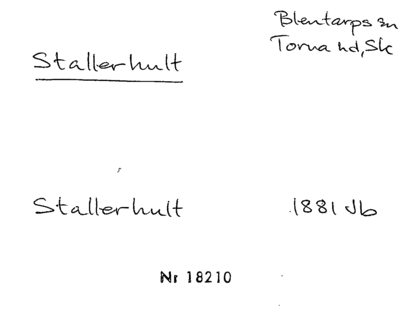 Blentarps sn
Torna hd, Sk
Stallerhult
Stallerhult 1881 Jb
Nr 18210